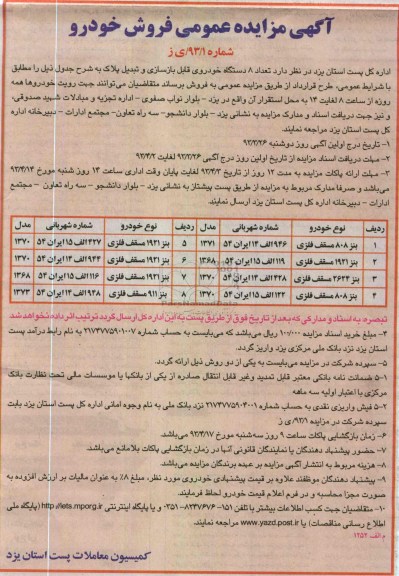 آگهی مزایده عمومی فروش خودرو
شماره ۹۳/۱/ی ز
اداره کل پست استان یزد در نظر دارد تعداد ۸ دستگاه خودروی قابل بازسازی و تبدیل پلاک به شرح جدول ذیل را مطابق
با شرایط عمومی، طرح قرارداد از طریق مزایده عمومی به فروش برساند متقاضیان می‌توانند جهت رویت خودروها همه
روزه از ساعت ۸ لغایت ۱۴ به محل استقرار آن واقع در یزد - بلوار نواب صفوی - اداره تجزیه و مبادلات شهید صدوقی،
و نیز جهت دریافت اسناد و مدارک مزایده به نشانی یزد - بلوار دانشجو- سه راه تعاون- مجتمع ادارات - دبیرخانه اداره
کل پست استان یزد مراجعه نمایند.
۱- تاریخ درج اولین آگهی روز دوشنبه ۹۳/۳/۲۶
۲- مهلت دریافت اسناد مزایده از تاریخ اولین روز درج آگهی ۹۳/۳/۲۶ لغایت ۹۳/۴/۲
۳- مهلت ارائه پاکات مزایده به مدت ۱۲ روز از تاریخ ۹۳/۴/۳ لغایت پایان وقت اداری ساعت ۱۴ روز شنبه مورخ ۹۳/۴/۱۴
می‌باشد و صرفا مدارک مربوط به مزایده از طریق پست پیشتاز به نشانی یزد - بلوار دانشجو - سه راه تعاون - مجتمع
ادارات - دبیرخانه اداره کل پست استان یزد ارسال نمایند.
ردیف نوع خودرو شماره شهربانی مدل ردیف نوع خودرو شماره شهربانی مدل
۱ بنز ۸۰۸ مسقف فلزی ۹۴۶ الف ۱۴ ایران ۵۴ ۱۳۷۱ ۵ بنز ۱۹۲۱ مسقف فلزی ۴۲۷ الف ۱۵ ایران ۵۴ ۱۳۷۰
۲ بنز ۱۹۲۱ مسقف فلزی ۱۱۹ الف ۱۵ ایران ۵۴ ۱۳۶۸ ۶ بنز ۱۹۲۱ مسقف فلزی ۹۴۴ الف ۱۴ ایران ۵۴ ۱۳۷۰
۳ بنز ۲۶۲۴ مسقف فلزی ۴۲۸ الف ۱۴ ایران ۵۴ ۱۳۷۰ ۷ بنز ۱۹۲۱ مسقف فلزی ۱۱۶ الف ۱۵ ایران ۵۴ ۱۳۶۸
۴ بنز ۸۰۸ مسقف فلزی ۱۲۲ الف ۱۵ ایران ۵۴ ۱۳۷۰ بنز ۹۱۱ مسقف فلزی ۹۳۸ الف ۱۴ ایران ۵۴ ۱۳۷۳
تبصره: به اسناد و مدارکی که بعد از تاریخ فوق از طریق پست به این اداره کل ارسال گردد ترتیب اثر داده نخواهد شد
۴- مبلغ خرید اسناد مزایده ۱۰۰/۰۰۰ ریال می‌باشد که می‌بایست به حساب شماره ۲۱۷۴۷۷۵۹۰۱۰۰۷ به نام رابط درآمد پست
استان یزد نزد بانک ملی مرکزی یزد واریز گردد.
۵- سپرده شرکت در مزایده می‌بایست به یکی از دو روش ذیل ارائه گردد.
۵-۱ ضمانت نامه بانکی معتبر قابل تمدید وغیر قابل انتقال صادره از یکی از بانکها یا موسسات مالی تحت نظارت بانک
مرکزی با اعتبار اولیه سه ماهه
۵-۲ فیش واریزی نقدی به حساب شماره ۲۱۷۴۷۷۵۹۰۴۰۰۱ نزد بانک ملی به نام وجوه امانی اداره کل پست استان یزد بابت
سپرده شرکت در مزایده ۹۳/۱/ی ز
۶- زمان بازگشایی پاکات ساعت ۹ روز سه‌شنبه مورخ ۹۳/۴/۱۷ می‌باشد.
۷- حضور پیشنهاد دهندگان یا نمایندگان قانونی آنها در زمان بازگشایی پاکات بلامانع می‌باشد.
۸- هزینه مربوط به انتشار آگهی مزایده بر عهده برندگان مزایده می‌باشد.
۹- پیشنهاد دهندگان موظفند علاوه بر قیمت پیشنهادی خودروی مورد نظر، مبلغ ۸٪ به عنوان مالیات بر ارزش افزوده به
صورت مجزا محاسبه و در فرم اعلام قیمت خودرو لحاظ فرمایند.
۱۰- متقاضیان جهت کسب اطلاعات بیشتر با تلفن ۱۵۱-۸۲۴۷۶۷۶-۰۳۵۱ و یا پایگاه اینترنتی http://iets.mporg.ir (پایگاه ملی
اطلاع رسانی مناقصات) یا www.yazd.post.ir مراجعه نمایند.
م الف ۱۲۵۲
کمیسیون معاملات پست استان یزد